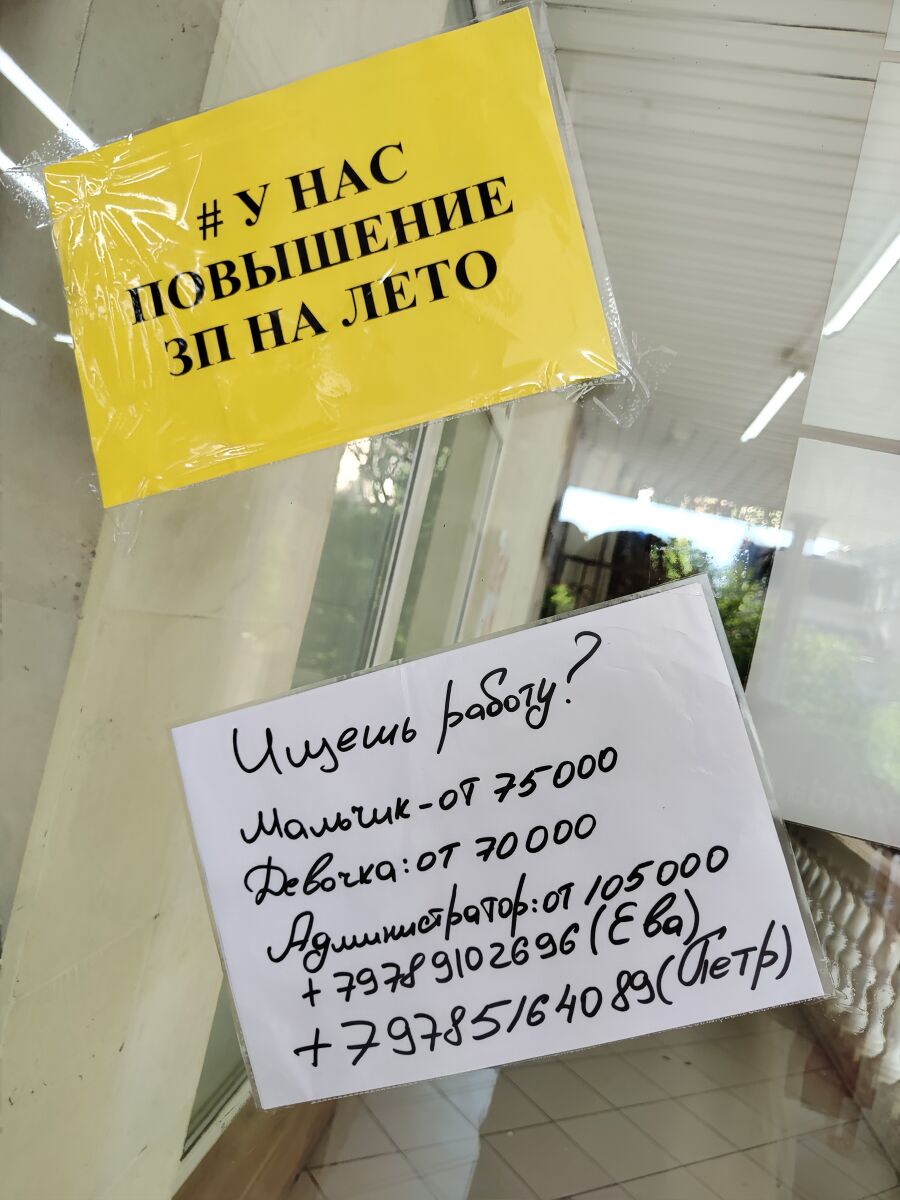 # У НАС
ПОВЫШЕНИЕ
ЗП НА ЛЕТО
Ищешь работу?
Мальчик - от 75000
Девочка: от 70000
Администратор: от 105000
+79789102696 (Ева)
+79785164089 (Петр)